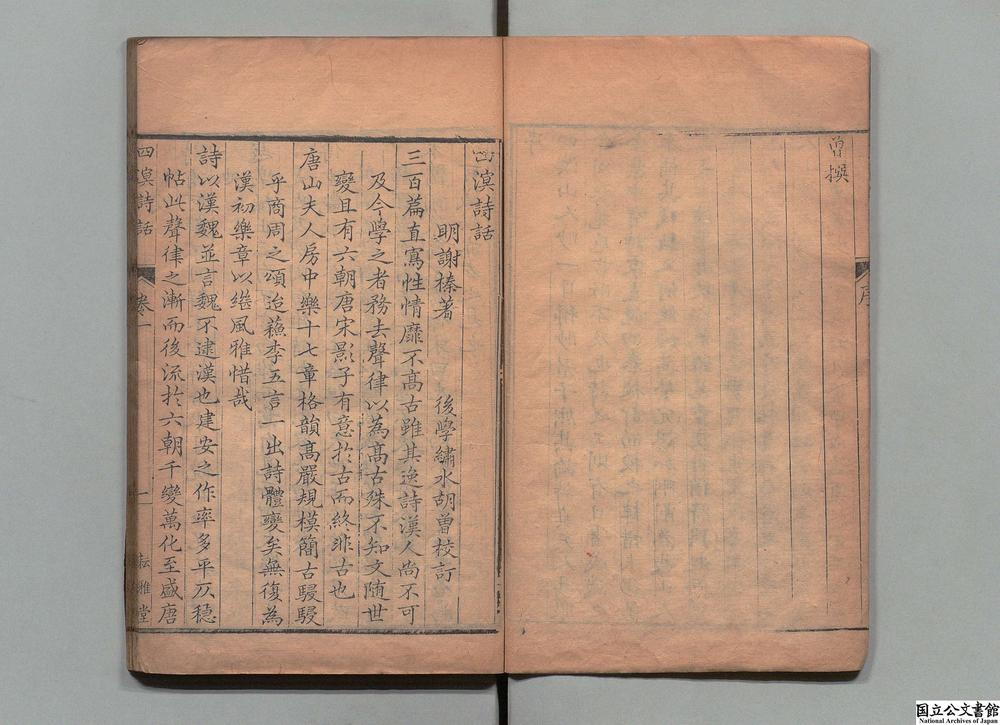 曽撰
序
四溟詩話
明謝榛著　後學繡水胡曽校訂
三百篇直寫性情靡不髙古雖其逸詩漢人尚不可
及今學之者務去聲律以為髙古殊不知文随世
變且有六朝唐宋影子有意於古而終非古也
唐山夫人房中樂十七章格韻髙嚴規模簡古駸駸
乎商周之頌迨蘓李五言一出詩體變矣無復為
漢初樂章以繼風雅惜哉
詩以漢魏並言魏不逮漢也建安之作率多平仄穏
帖此聲律之漸而後流於六朝千變萬化至盛唐
四溟詩話　卷一　一　耘雅堂
国立公文書館
National Archives of Japan